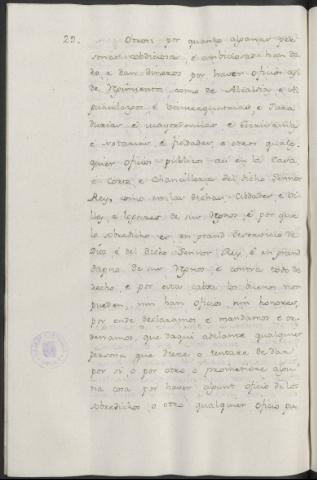 29. Otrosi por quanto algunas per
sonas cobdiciosas, é ambiciosas han da
do é dan dineros por haver oficios asi
de Regimiento, como de Alcaldia, é
é
é Notarias, é fieldades, é otros quales
quier oficios publicos asi en la Casa,
é Corte, é Chancilleria del dicho Señor
Rey, como en las dichas Cibdades, é Vi
llas, é logares de sus Regnos, é por que
lo sobredicho es en grand deservicio de
Dios, é del dicho Señor Rey, é en grand
dagno de sus Regnos, é contra todo de
recho, é por esta cabsa los buenos non
pueden, nin han oficios nin honores,
por ende declaramos é mandamos é or
denamos, que daqui adelante qualquier
persona que diere, o tentare de dar
por si, o por otro, o prometiere algu
na cosa por haver algunt oficio de los
sobredichos, o otro qualquier oficio pu